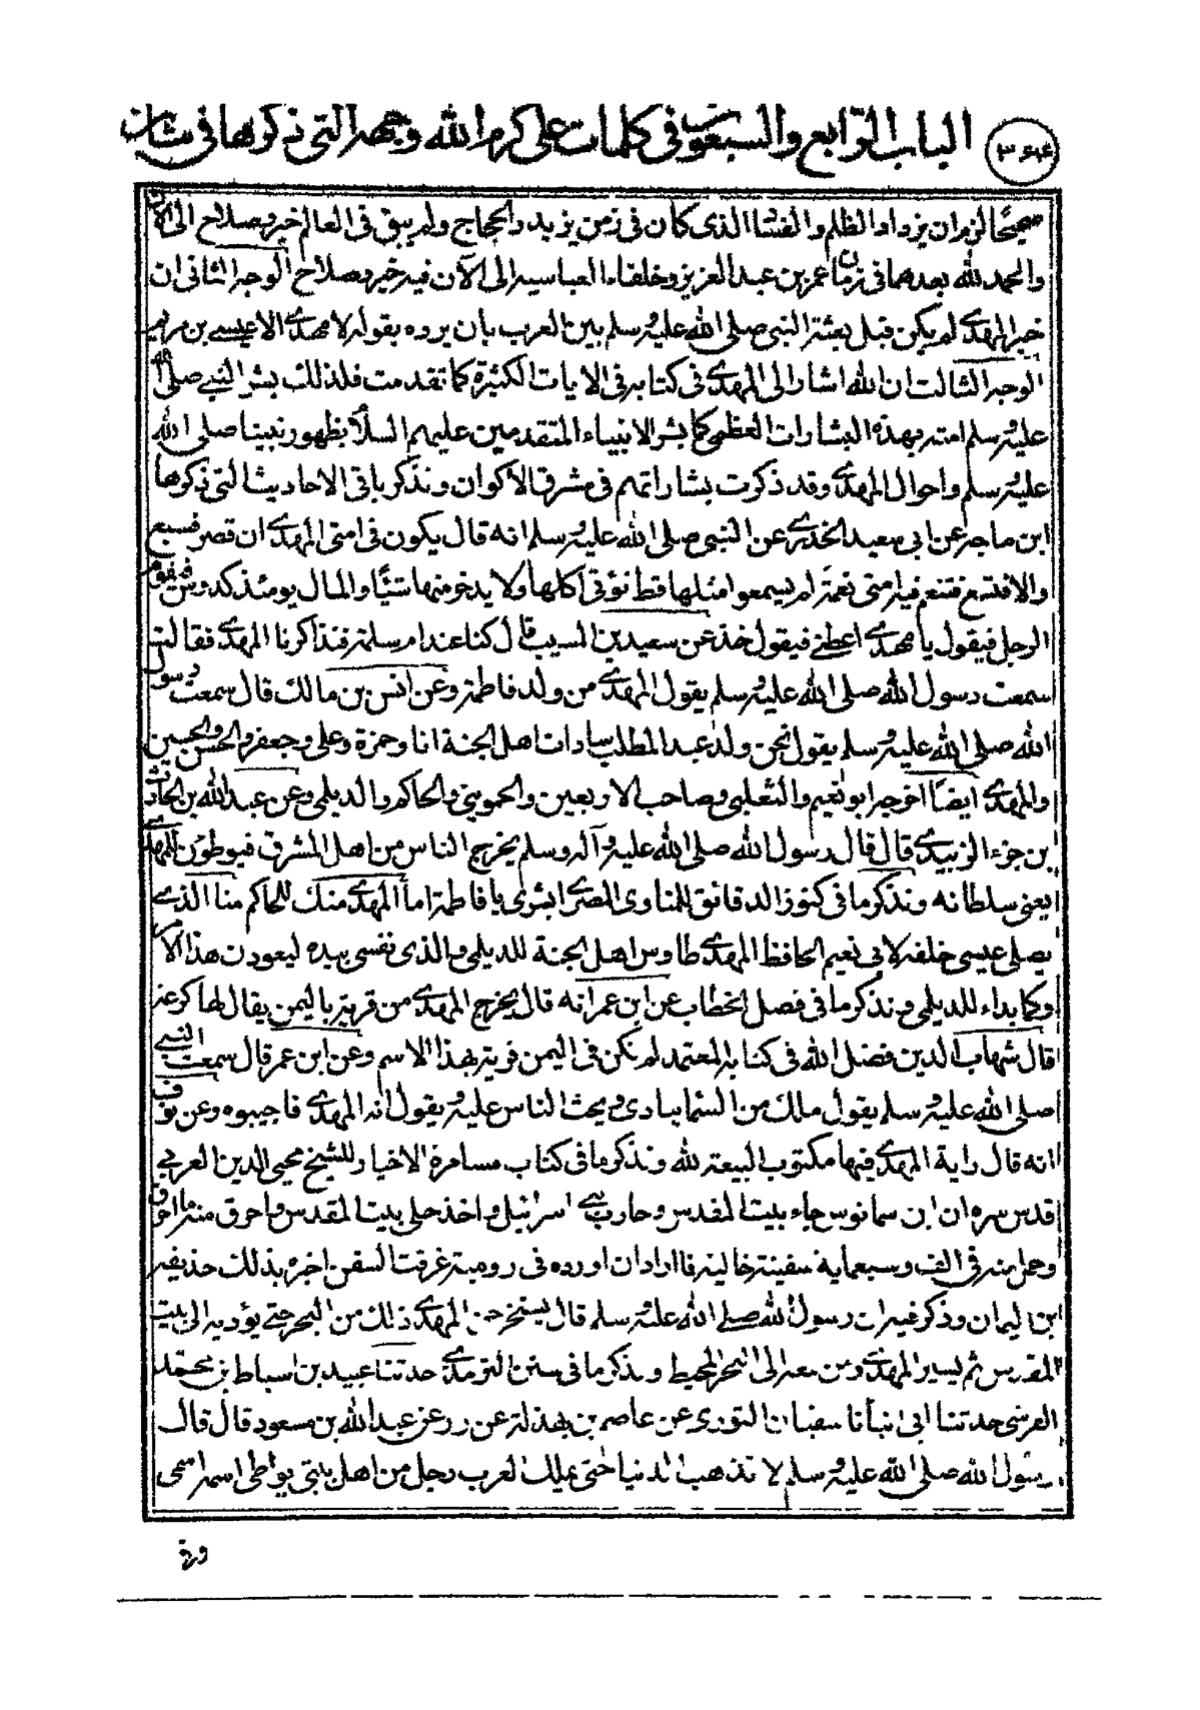 الباب الرابع والسبعون فى كلمات على كرم الله وجهه التى ذكرها فى شان
صحيحا لزم ان يزداد الظلم والفتنة الذى كان فى زمن يزيد والحجاج ولم يبق فى العالم خير وصلاح الى الآن
والحمد لله بعدهما فى زمان عمر بن عبد العزيز وخلفاء العباسيه الى الآن فيه خير وصلاح الوجه الثانى ان
خبر المهدى لم يكن قبل بعثة النبى صلى الله عليه وسلم بين العرب بان يرده بقوله لا مهدى الا عيسى بن مريم
الوجه الثالث ان الله اشار الى المهدى فى كتابه فى الايات الكثيرة كما تقدمت فلذلك بشر النبى صلى الله
عليه وسلم امته بهذه البشارات العظمى كما بشر الانبياء المتقدمين عليهم السلام بظهور نبينا صلى الله
عليه وسلم واحوال المهدى وقد ذكرت بشاراتهم فى مشرق الاكوان ونذكر باقى الاحاديث التى ذكرها
ابن ماجه عن ابى سعيد الخدرى عن النبى صلى الله عليه وسلم انه قال يكون فى امتى المهدى ان قصر فسبع
والا فتسع فتنعم فيه امتى نعمة لم يسمعوا مثلها قط تؤتى اكلها ولا يدخر منها شيئا والمال يومئذ كدوس فيقوم
الرجل فيقول يا مهدى اعطنى فيقول خذ عن سعيد بن المسيب قال كنا عند ام سلمة فتذاكرنا المهدى فقالت
سمعت رسول الله صلى الله عليه وسلم يقول المهدى من ولد فاطمة وعن انس بن مالك قال سمعت رسول
الله صلى الله عليه وسلم يقول نحن ولد عبد المطلب سادات اهل الجنة انا وحمزة وعلى وجعفر والحسن والحسين
والمهدى ايضا اخرجه ابو نعيم والثعلبى وصاحب الاربعين والحموينى والحاكم والديلمى وعن عبد الله بن الحارث
بن جزء الزبيدى قال قال رسول الله صلى الله عليه وآله وسلم يخرج الناس من اهل المشرق فيوطؤن للمهدى
يعنى سلطانه ونذكر ما فى كنوز الدقائق للمناوى المصرى ابشرى يا فاطمة اما المهدى منك للحاكم منا الذى
يصلى عيسى خلفه لابى نعيم الحافظ المهدى طاوس اهل الجنة للديلمى والذى نفسى بيده ليعودن هذا الامر
كما بداء للديلمى ونذكر ما فى فصل الخطاب عن ابن عمر انه قال يخرج المهدى من قرية باليمن يقال لها كرعه
قال شهاب الدين فضل الله فى كتابه المعتمد لم تكن فى اليمن قرية بهذا الاسم وعن ابن عمر قال سمعت النبى
صلى الله عليه وسلم يقول ملك من السما ينادى ويحث الناس عليه يقول انه المهدى فاجيبوه وعن نوف
انه قال راية المهدى فيها مكتوب البيعة لله ونذكر ما فى كتاب مسامرة الاخيار للشيخ محيى الدين العربى
قدس سره ان ابن سمانوس جاء بيت المقدس وحارب بنى اسرائيل واخذ حلى بيت المقدس واحرق منه ما احرق
وحمل منه فى الف وسبعماية سفينة خالية فاارادان اورده فى رومية غرقت السفن اخره بذلك حذيفه
ابن اليمان وذكر فيه ان رسول الله صلى الله عليه وسلم قال يستخرجن المهدى ذلك من البحر حتى يؤديه الى بيت
المقدس ثم يسير المهدى ومن معه الى البحر المحيط ونذكر ما فى سنن الترمذى حدثنا عبيد بن اسباط بن محمد
القرشى حدثنا ابى انبأنا سفيان الثورى عن عاصم بن بهدلة عن زر عن عبد الله بن مسعود قال قال
رسول الله صلى الله عليه وسلم لا تذهب الدنيا حتى يملك العرب رجل من اهل بيتى يواطى اسمه اسمى
وفى